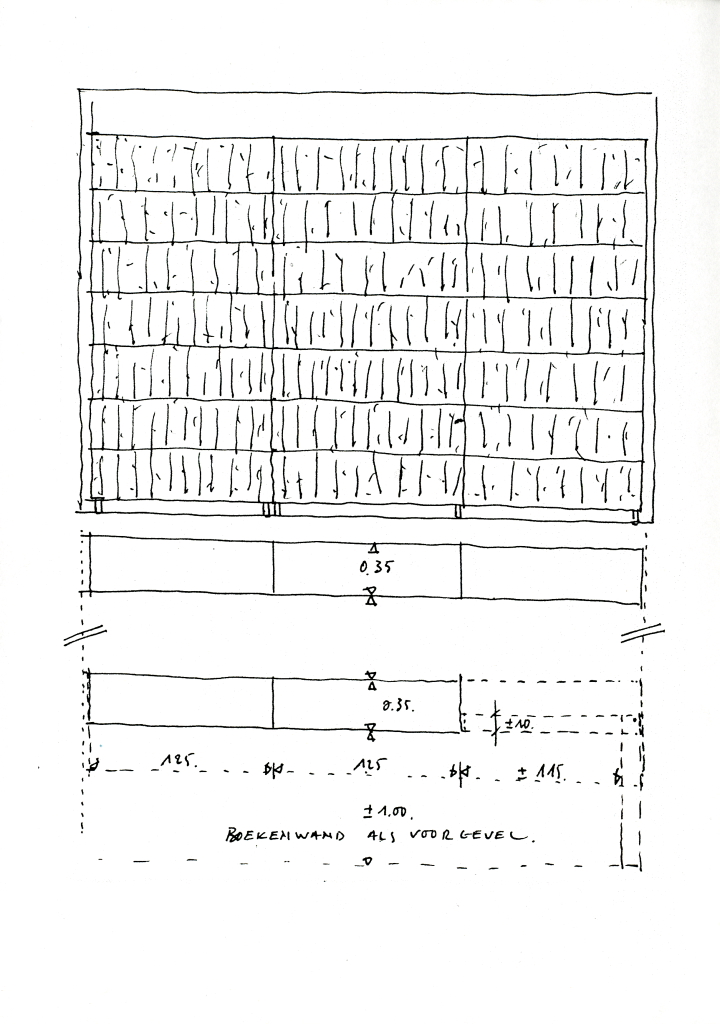 0.35
0.35.
±10.
125. 125 ± 115.
± 1.00.
BOEKENWAND ALS VOORGEVEL.